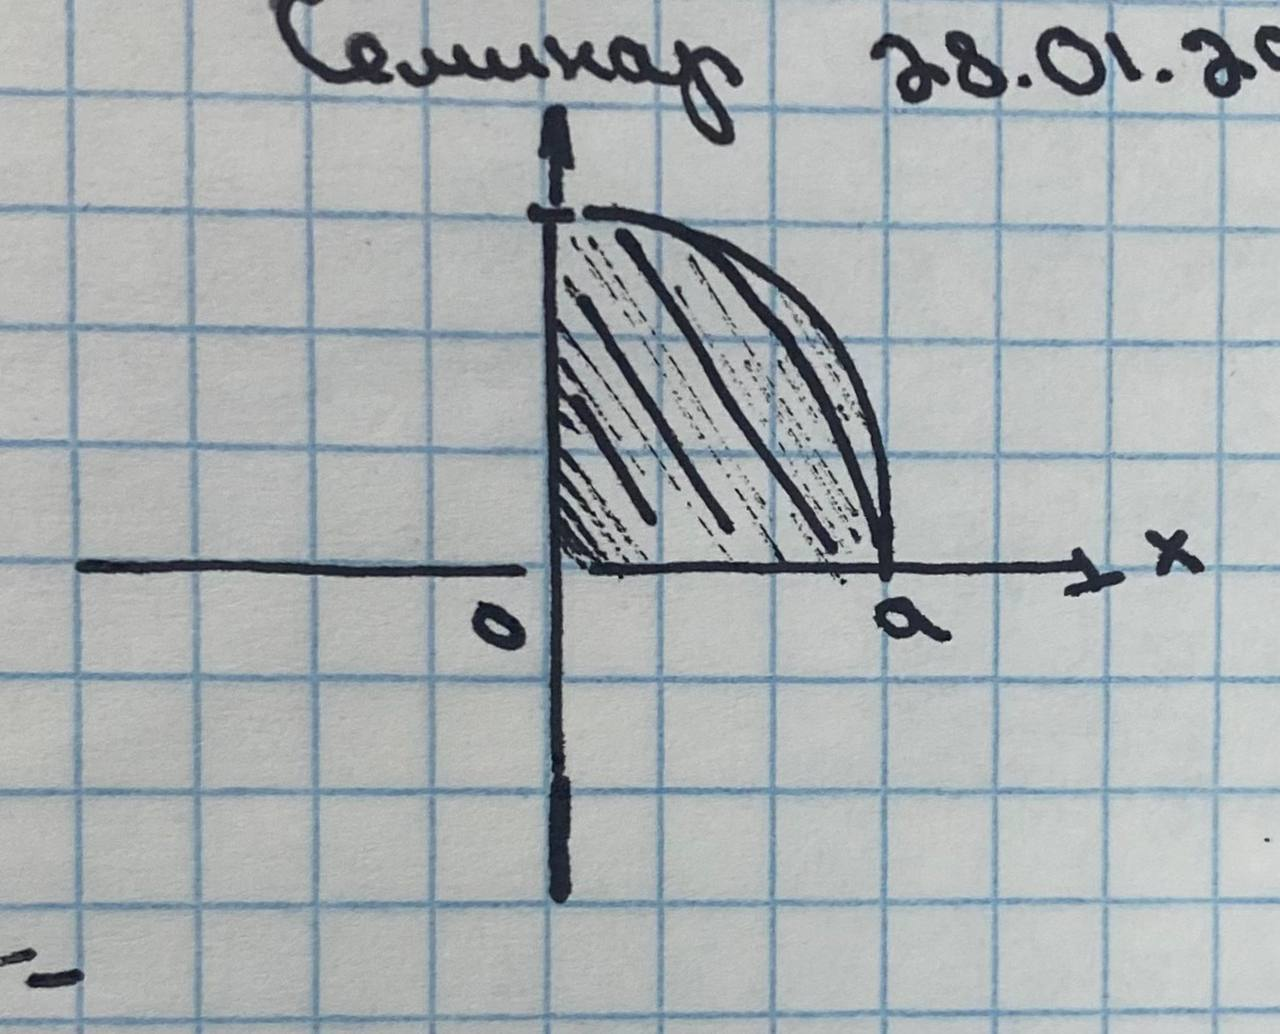 Семинар 28.01.20
x
0
a